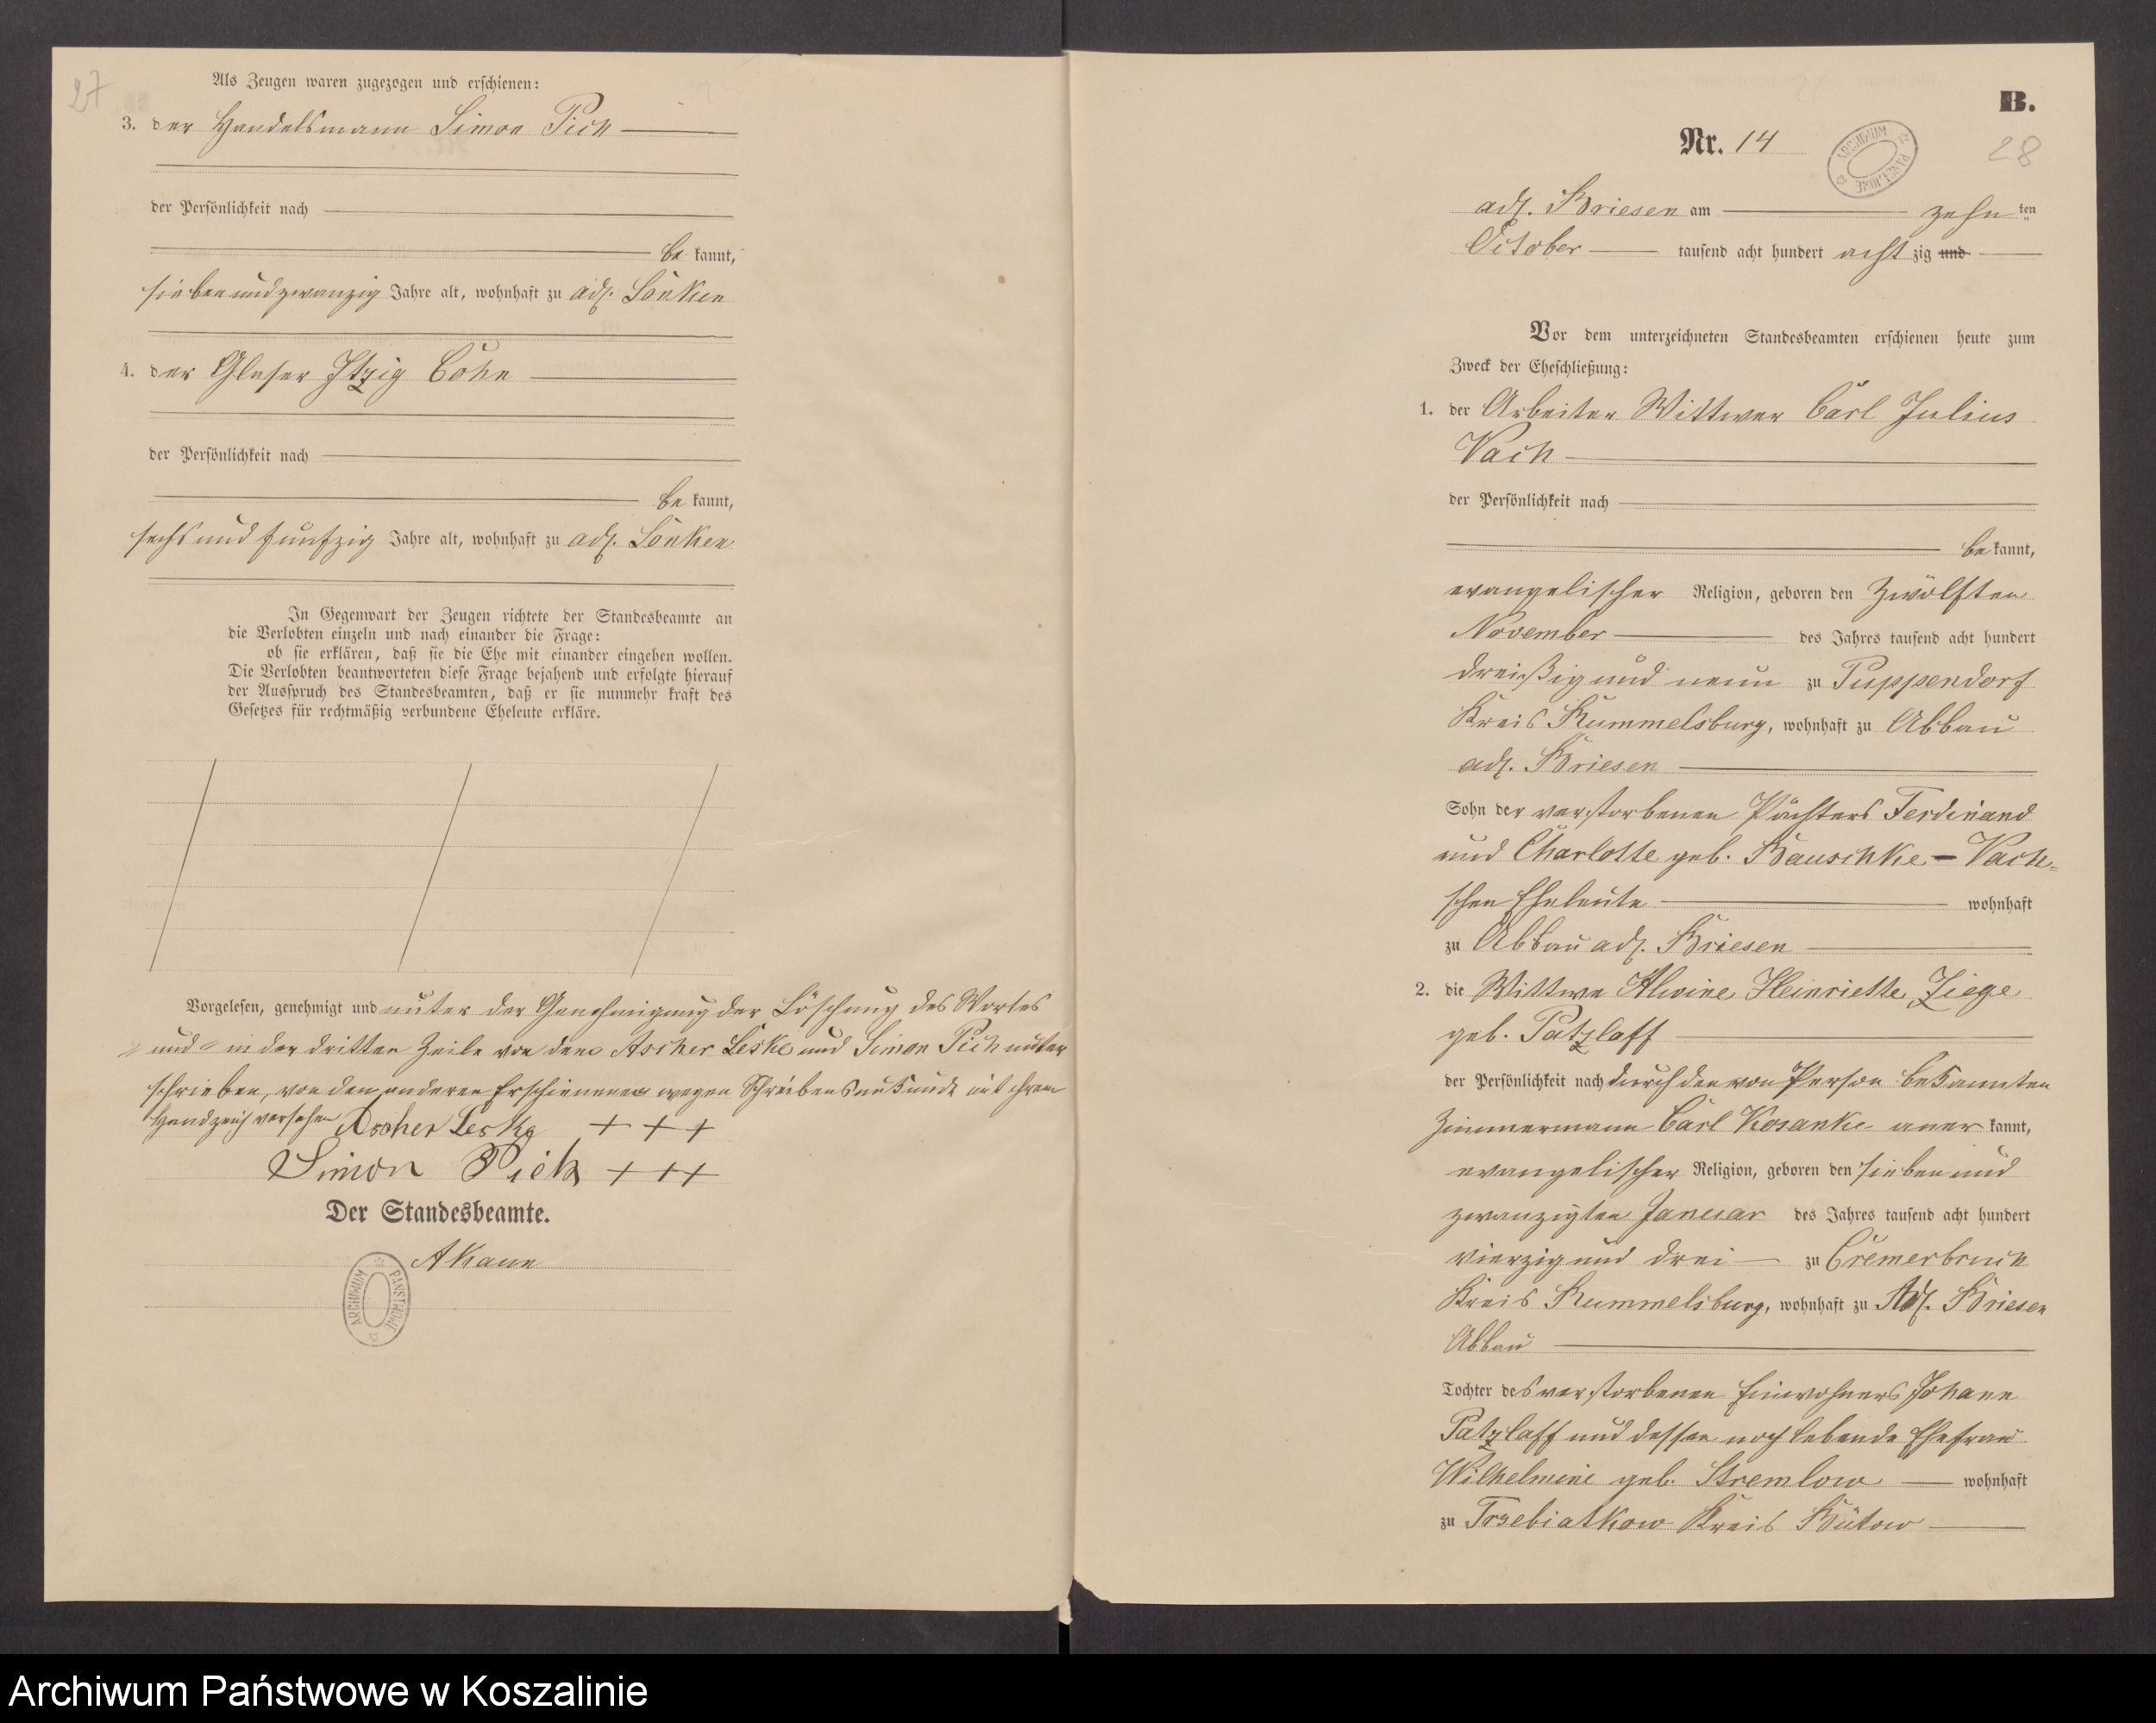 27
Als Zeugen waren zugezogen und erschienen:
3. der Handelsmann Simon Pich
der Persönlichkeit nach
be kannt,
siebenundzwanzig Jahre alt, wohnhaft zu adl. Lonken
4. der Glaser Itzig Cohn
der Persönlichkeit nach
be kannt,
sechs und funfzig Jahre alt, wohnhaft zu adl. Lonken
In Gegenwart der Zeugen richtete der Standesbeamte an
die Verlobten einzeln und nach einander die Frage:
ob sie erklären, daß sie die Ehe mit einander eingehen wollen.
Die Verlobten beantworteten diese Frage bejahend und erfolgte hierauf
der Ausspruch des Standesbeamten, daß er sie nunmehr kraft des
Gesetzes für rechtmäßig verbundene Eheleute erkläre.
Vorgelesen, genehmigt und unter der Genehmigung der Löschung des Wortes
"und" in der dritten Zeile von dem Ascher Leske und Simon Pich unter
schrieben, von den anderen Erschienenen wegen Schreibensunkunde mit ihrem
Handzeich versehen Ascher Leske + + +
Simon Pich + + +
Der Standesbeamte.
A Kaun
ARCHIWUM PAŃSTWOWE
B.
Nr. 14
ARCHIWUM PAŃSTWOWE
28
adl. Briesen am zehn ten
October tausend acht hundert acht zig und
Vor dem unterzeichneten Standesbeamten erschienen heute zum
Zweck der Eheschließung:
1. der Arbeiter Wittwer Carl Julius
Vach
der Persönlichkeit nach
be kannt,
evangelischer Religion, geboren den Zwölften
November des Jahres tausend acht hundert
dreißig und neun zu Puppendorf
Kreis Rummelsburg, wohnhaft zu Abbau
adl. Briesen
Sohn der verstorbenen Pächters Ferdinand
und Charlotte geb. Bauschke - Vach-
schen Eheleute wohnhaft
zu Abbau adl. Briesen
2. die Wittwe Alwine Heinriette Ziege
geb. Patzlaff
der Persönlichkeit nach durch den von Person bekannten
Zimmermann Carl Kosanke aner kannt,
evangelischer Religion, geboren den sieben und
zwanzigten Januar des Jahres tausend acht hundert
vierzig und drei zu Cremerbruch
Kreis Rummelsburg, wohnhaft zu Adl. Briesen
Abbau
Tochter des verstorbenen Einwohners Johann
Patzlaff und dessen noch lebende Ehefrau
Wilhelmine geb. Stremlow wohnhaft
zu Trzebiatkow Kreis Bütow
Archiwum Państwowe w Koszalinie